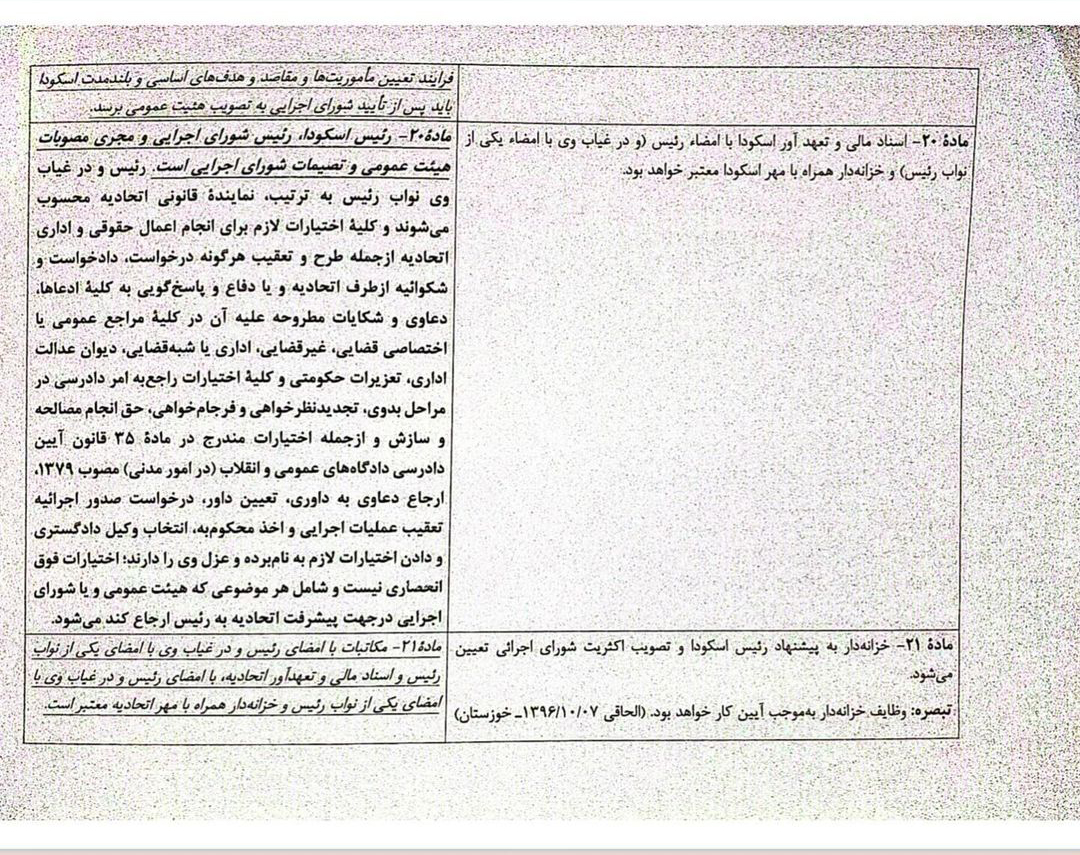 فرایند تعیین مأموریت‌ها و مقاصد و هدف‌های اساسی و بلندمدت اسکودا
باید پس از تأیید شورای اجرایی به تصویب هئیت عمومی برسد.
مادهٔ ۲۰- اسناد مالی و تعهد آور اسکودا با امضاء رئیس (و در غیاب وی با امضاء یکی از
نواب رئیس) و خزانه‌دار همراه با مهر اسکودا معتبر خواهد بود.
مادهٔ۲۰- رئیس اسکودا، رئیس شورای اجرایی و مجری مصوبات
هیئت عمومی و تصیمات شورای اجرایی است. رئیس و در غیاب
وی نواب رئیس به ترتیب، نمایندهٔ قانونی اتحادیه محسوب
می‌شوند و کلیهٔ اختیارات لازم برای انجام اعمال حقوقی و اداری
اتحادیه ازجمله طرح و تعقیب هرگونه درخواست، دادخواست و
شکوائیه ازطرف اتحادیه و یا دفاع و پاسخ‌گویی به کلیهٔ ادعاها،
دعاوی و شکایات مطروحه علیه آن در کلیهٔ مراجع عمومی یا
اختصاصی قضایی، غیرقضایی، اداری یا شبه‌قضایی، دیوان عدالت
اداری، تعزیرات حکومتی و کلیهٔ اختیارات راجع‌به امر دادرسی در
مراحل بدوی، تجدیدنظرخواهی و فرجام‌خواهی، حق انجام مصالحه
و سازش و ازجمله اختیارات مندرج در مادهٔ ۳۵ قانون آیین
دادرسی دادگاه‌های عمومی و انقلاب (در امور مدنی) مصوب ۱۳۷۹،
ارجاع دعاوی به داوری، تعیین داور، درخواست صدور اجرائیه
تعقیب عملیات اجرایی و اخذ محکوم‌به، انتخاب وکیل دادگستری
و دادن اختیارات لازم به نام‌برده و عزل وی را دارند؛ اختیارات فوق
انحصاری نیست و شامل هر موضوعی که هیئت عمومی و یا شورای
اجرایی درجهت پیشرفت اتحادیه به رئیس ارجاع کند می‌شود.
مادهٔ ۲۱- خزانه‌دار به پیشنهاد رئیس اسکودا و تصویب اکثریت شورای اجرائی تعیین
می‌شود.
تبصره: وظایف خزانه‌دار به‌موجب آیین کار خواهد بود. (الحاقی ۱۳۹۶/۱۰/۰۷ـ خوزستان)
مادهٔ۲۱- مکاتبات با امضای رئیس و در غیاب وی با امضای یکی از نواب
رئیس و اسناد مالی و تعهدآور اتحادیه، با امضای رئیس و در غیاب وی با
امضای یکی از نواب رئیس و خزانه‌دار همراه با مهر اتحادیه معتبر است.